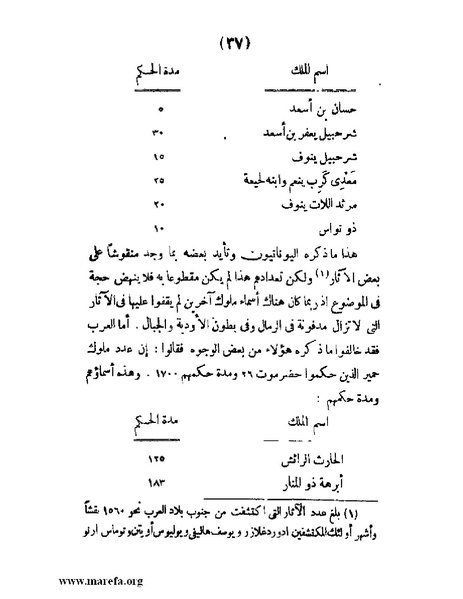 (٣٧)
اسم الملك مدة الحكم
حسان بن أسعد ٥
شرحبيل يعفر بن أسعد ٣٠
شرحبيل ينوف ١٥
مَعْدِي كَرِب ينعم وابنه لحيعة ٢٥
مرثد اللات ينوف ٢٠
ذو نواس ١٠
هذا ما ذكره اليونانيون وتأيد بعضه بما وجد منقوشاً على
بعض الآثار (١) ولكن تعدادهم هذا لم يكن مقطوعا به فلا ينهض حجة
فى الموضوع إذ ربما كان هناك أسماء ملوك آخرين لم يقفوا عليها فى الآثار
التى لا تزال مدفونة فى الرمال وفى بطون الأودية والجبال . أما العرب
فقد خالفوا ما ذكره هؤلاء من بعض الوجوه فقالوا : إن عدد ملوك
حمير الذين حكموا حضرموت ٢٦ ومدة حكمهم ١٧٠٠ . وهذه أسماؤهم
ومدة حكمهم :
اسم الملك مدة الحكم
الحارث الرائش ١٢٥
أبرهة ذو المنار ١٨٣
(١) بلغ عدد الآثار التى اكتشفت من جنوب بلاد العرب نحو ١٥٦٠ نقشاً
وأشهر أولئك المكتشفين ادورد غلازر ويوسف هاليفى ويوليوس أويتن وتوماس ارنو
www.marefa.org